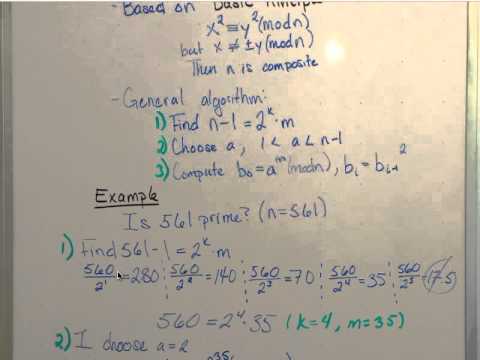 - Based on "Basic Principle"
x² ≡ y² (mod n)
but x ≠ ±y (mod n)
Then n is composite
- General algorithm:
1) Find n-1 = 2ᵏ·m
2) Choose a, 1 < a < n-1
3) Compute b₀ = aᵐ (mod n), bᵢ = bᵢ₋₁²
Example
Is 561 prime? (n=561)
1) Find 561-1 = 2ᵏ·m
560/2¹ = 280 560/2² = 140 560/2³ = 70 560/2⁴ = 35 560/2⁵ = 17.5
560 = 2⁴·35 (k=4, m=35)
2) I choose a=2